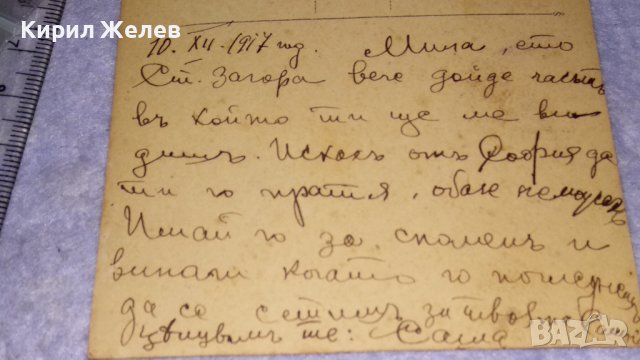 Кирил Желев
10. XII. 1917 год. Мина, ето
Ст. Загора вече дойде часътъ
въ който ти ще ме ви
дишъ. Искахъ отъ София да
ти го пратя, обаче не можехъ
Имай го за споменъ и
винаги когато го погледнешъ
да се сетишъ за твоя
те: Саша
BAZAR